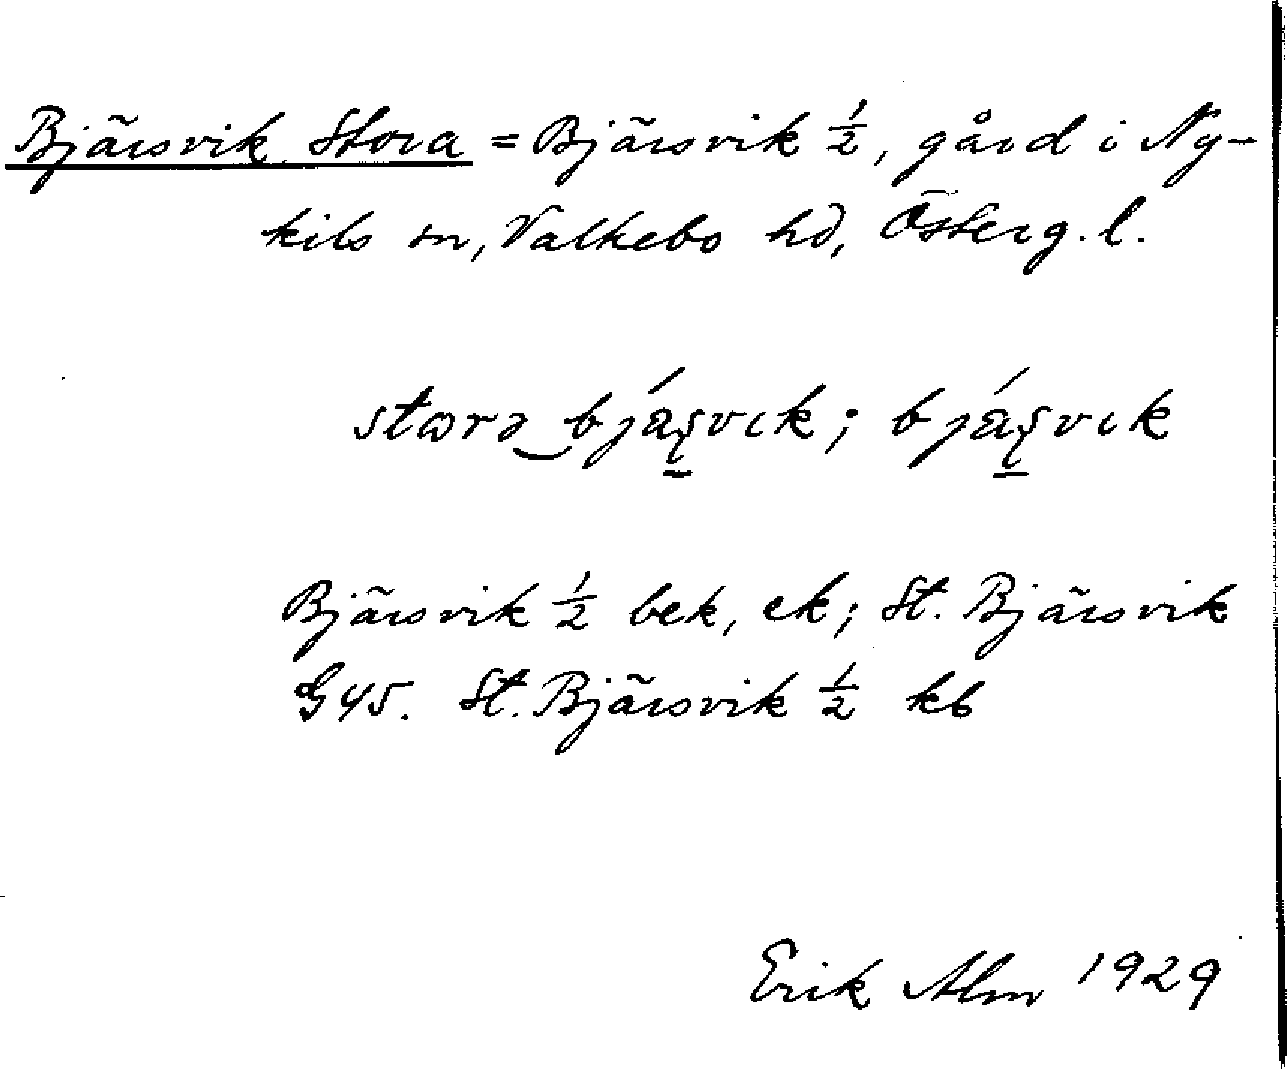 Bjärsvik Stora = Bjärsvik ½, gård i Ny-
kils sn, Valkebo hd, Österg. l.
Bjärsvik ½ bek, ek; St. Bjärsvik
G45. St. Bjärsvik ½ kb
Erik Alm 1929